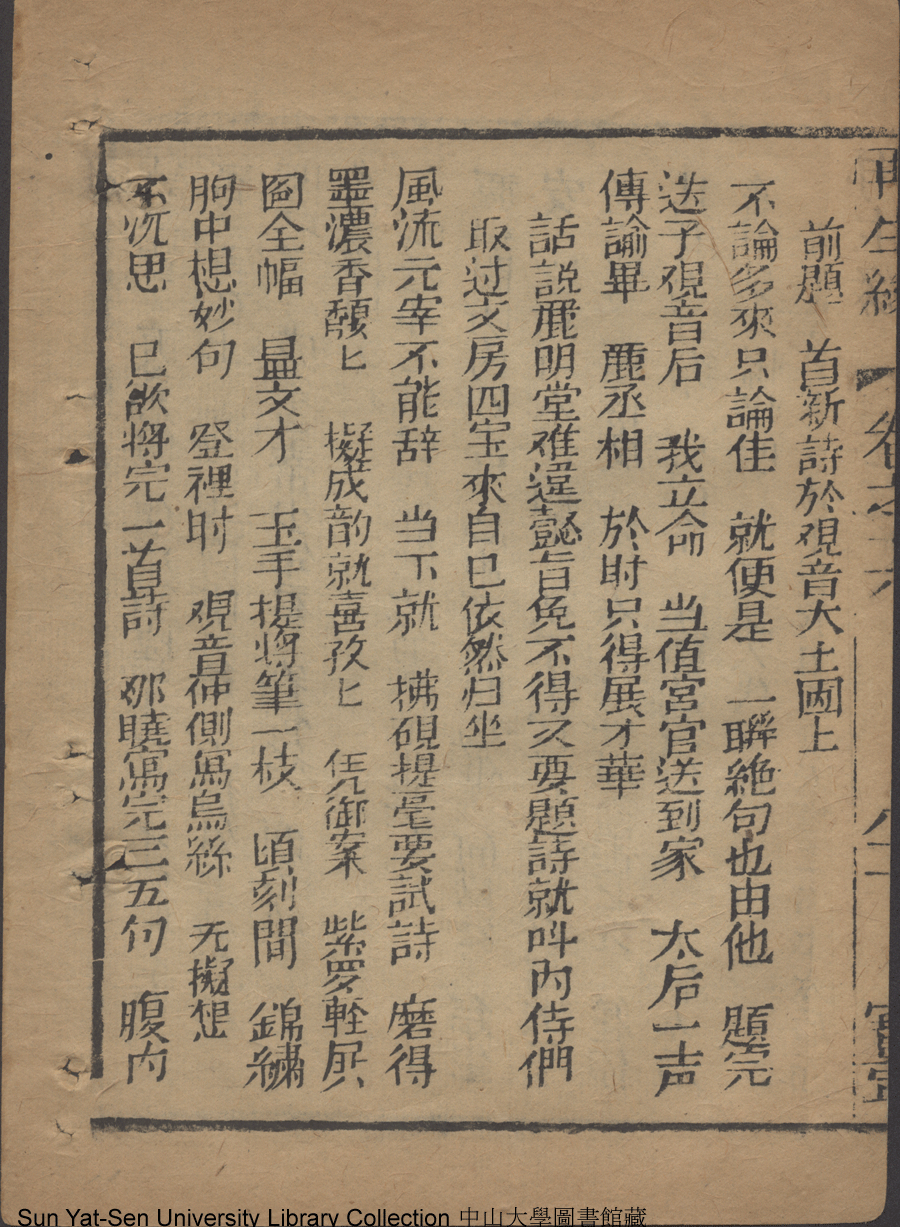 再生緣 卷之十六
前題 首新詩於观音大士图上
不論多來只論佳 就便是 一聯絶句也由他 題完
送子观音后 我立命 当值宮官送到家 太后一声
傳諭畢 麗丞相 於时只得展才華
話説麗明堂难違懿旨免不得又要題詩就呌內侍們
取过文房四宝來自已依然归坐
風流元宰不能辞 当下就 拂硯提毫要試詩 磨得
墨濃香馥匕 擬成韵就喜孜匕 凭御案 紫罗輕展
圖全幅 显文才 玉手提將筆一枝 頃刻間 錦繡
胸中想妙句 登裡时 观音仲側寫烏絲 无擬想
不沉思 已欲將完一首詩 那曉寫完三五句 腹内
Sun Yat-Sen University Library Collection 中山大學圖書館藏